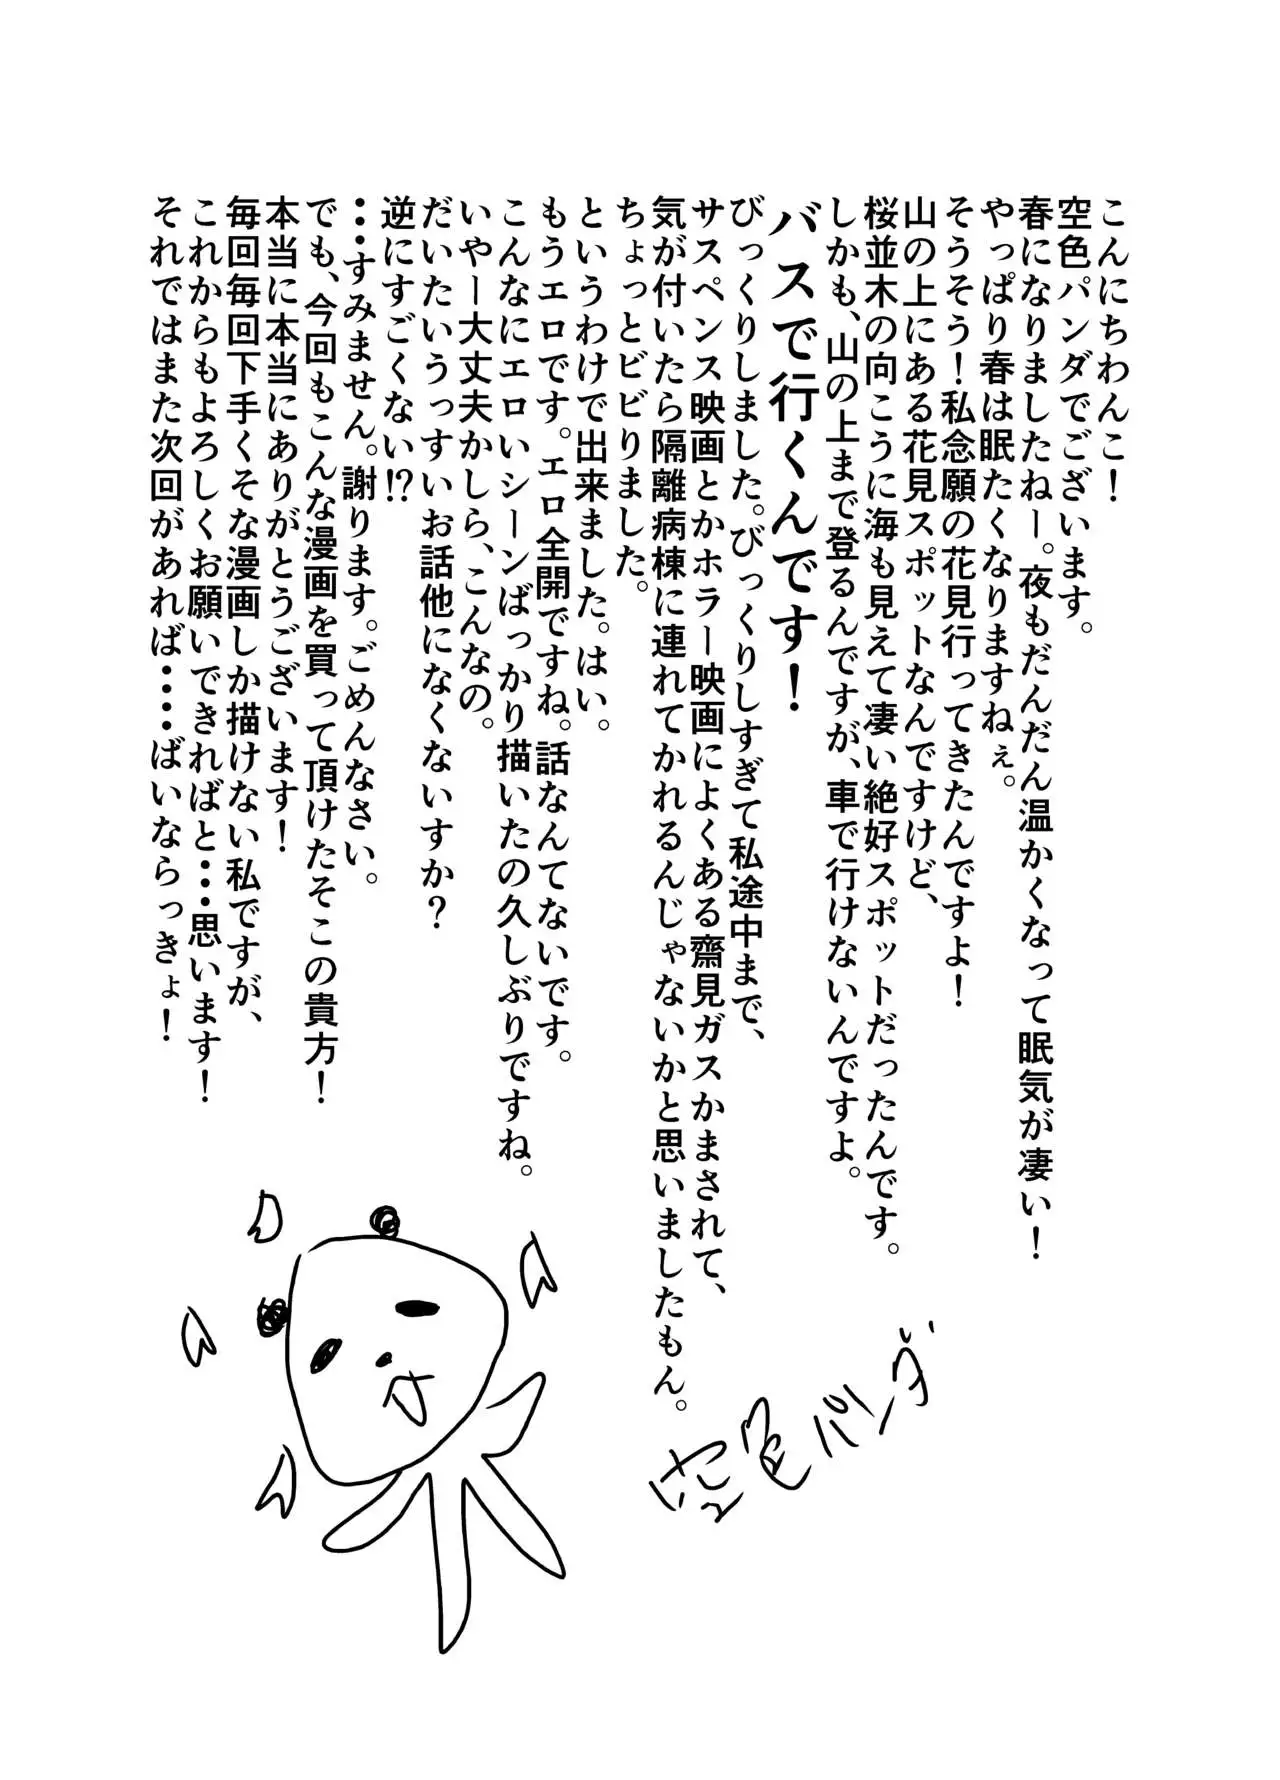 こんにちわんこ！
空色パンダでございます。
春になりましたねー。夜もだんだん温かくなって眠気が凄い！
やっぱり春は眠たくなりますねぇ。
そうそう！私念願の花見行ってきたんですよ！
山の上にある花見スポットなんですけど、
桜並木の向こうに海も見えて凄い絶好スポットだったんです。
しかも、山の上まで登るんですが、車で行けないんですよ。
バスで行くんです！
びっくりしました。びっくりしすぎて私途中まで、
サスペンス映画とかホラー映画によくある齋見ガスかまされて、
気が付いたら隔離病棟に連れてかれるんじゃないかと思いましたもん。
ちょっとビビりました。
というわけで出来ました。はい。
もうエロです。エロ全開ですね。話なんてないです。
こんなにエロいシーンばっかり描いたの久しぶりですね。
いやー大丈夫かしら、こんなの。
だいたいうっすいお話他になくないすか？
逆にすごくない!?
・・・すみません。謝ります。ごめんなさい。
でも、今回もこんな漫画を買って頂けたそこの貴方！
本当に本当にありがとうございます！
毎回毎回下手くそな漫画しか描けない私ですが、
これからもよろしくお願いできればと・・・思います！
それではまた次回があれば・・・・ばいならっきょ！
空色パンダ